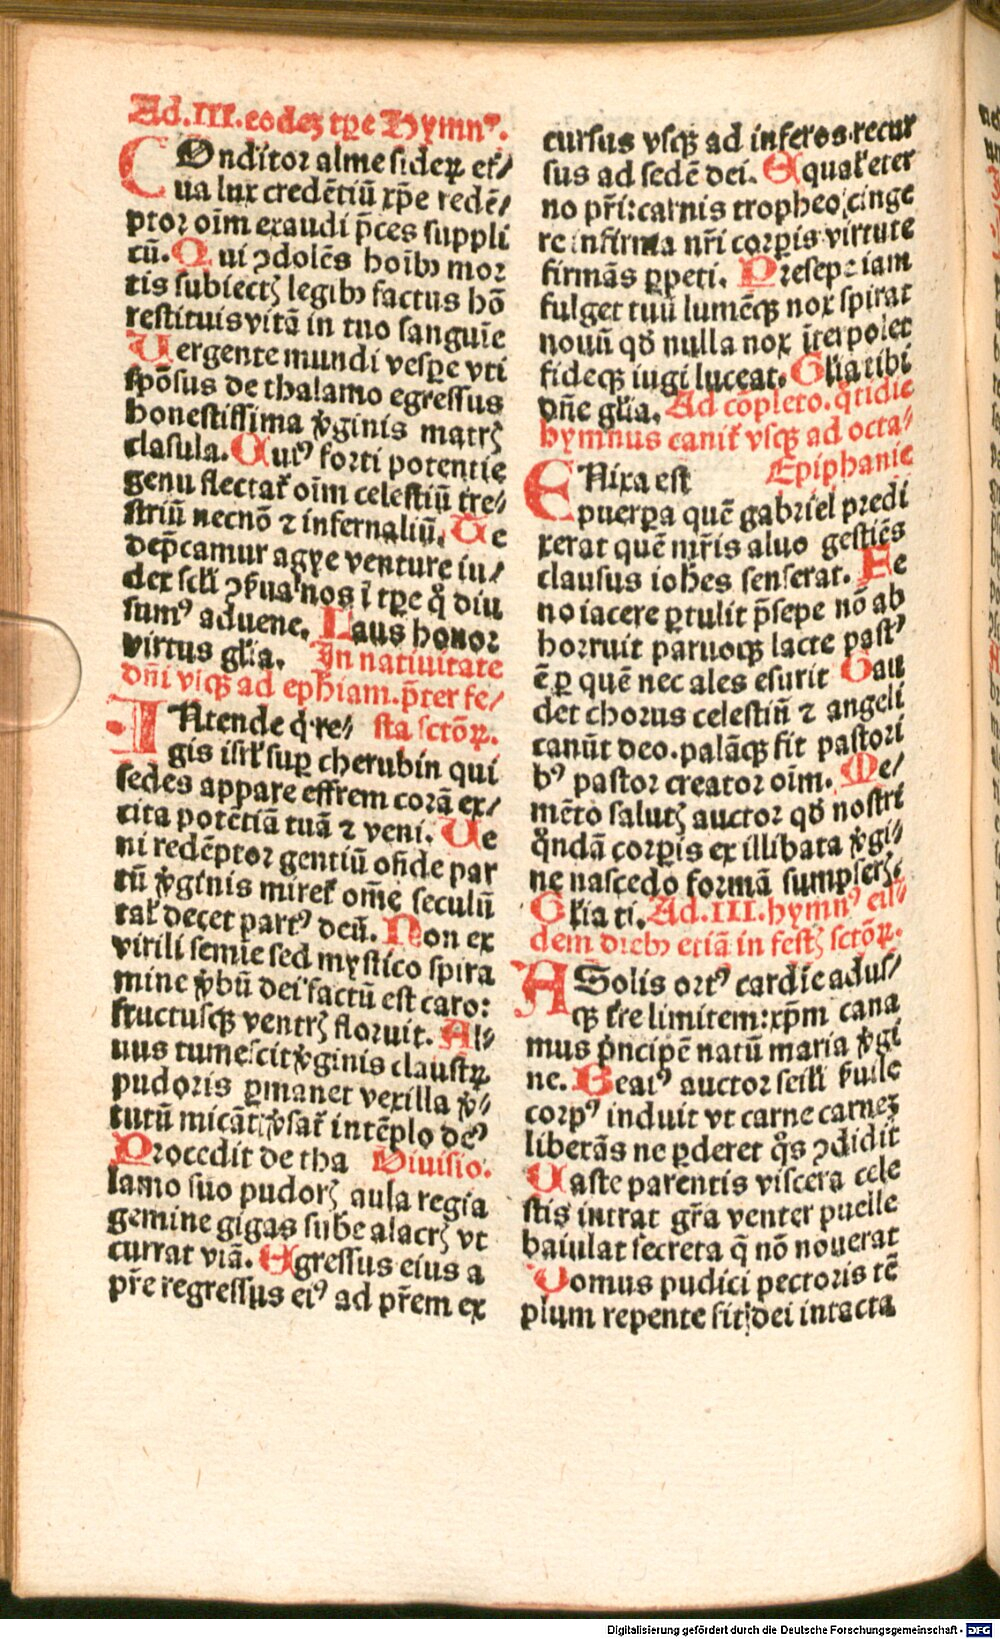 Ad.III.eodeʒ tꝑe Hymnꝰ.
COnditor alme sideꝝ et̉⸗
ua lux credẽtiũ xp̃e redẽ⸗
ptor oĩm exaudi p̃ces suppli
cũ. Qui ꝯdolẽs hoĩbꝫ mor
tis subiectꝭ legibꝫ factus hõ
restituis vitã in tuo sanguĩe
Uergente mundi vesꝑe vti
spõsus de thalamo egressus
honestissima ꝟginis matrꝭ
clasula. Cuiꝰ forti potentie
genu flectat̉ oĩm celestiũ tre⸗
striũ necnõ ⁊ infernaliũ. Te
dep̃camur agye venture iu⸗
dex scl̉i ꝯẜua nos ĩ tꝑe q̊ diu
sumꝰ aduene. Laus honor
virtus gl̉ia. In natiuitate
dñi vsqꝫ ad ephiam. p̃ter fe⸗
INtende q̇ re⸗ sta sctõꝝ.
gis isrl̉ suꝑ cherubin qui
sedes appare effrem corã ex⸗
cita potẽtiã tuã ⁊ veni. Ue
ni redẽptor gentiũ oñde par
tũ ꝟginis miret̉ om̃e seculũ
tal̉ decet partꝰ deũ. Non ex
virili semĩe sed mystico spira
mine ꝟbũ dei factũ est caro:
fructusqꝫ ventrꝭ floruit. Al⸗
uus tumescit ꝟginis claustꝝ
pudoris ꝑmanet vexilla ꝟ⸗
tutũ micãt ꝟsat̉ in tẽplo deꝰ
Procedit de tha Diuisio.
lamo suo pudorꝭ aula regia
gemine gigas sube alacrꝭ vt
currat viã. Egressus eius a
pr̃e regressus eiꝰ ad pr̃em ex
cursus vsqꝫ ad inferos recur
sus ad sedẽ dei. Equal̉ eter
no pr̃i: carnis tropheo cinge
re infirma nr̃i corꝑis virtute
firmãs ꝑpeti. Presepe iam
fulget tuũ lumẽqꝫ nox spirat
nouũ qḋ nulla nox ĩterpolet
fideqꝫ iugi luceat. Gl̉ia tibi
dñe gl̉ia. Ad cõpleto. q̊tidie
hymnus canit̉ vsqꝫ ad octa⸗
ENixa est Epiphanie
puerꝑa quẽ gabriel predi
xerat quẽ mr̃is aluo gestiẽs
clausus ioh̃es senserat. Fe
no iacere ꝑtulit p̃sepe nõ ab
horruit paruoqꝫ lacte pastꝰ
ẽ ꝑ quẽ nec ales esurit Gau
det chorus celestiũ ⁊ angeli
canũt deo. palãqꝫ fit pastori
bꝰ pastor creator oĩm. Me⸗
mẽto salutꝭ auctor qḋ nostri
q̊ndã corꝑis ex illibata ꝟgi⸗
ne nascẽdo formã sumpserꝭ
Gl̉ia ti. Ad.III. hymnꝰ eis⸗
dem diebꝫ etiã in festꝭ sctõꝝ.
A Solis ortꝰ cardĩe adus⸗
qꝫ t̉re limitem: xp̃m cana
mus pͥncipẽ natũ maria ꝟgi
ne. Beatꝰ auctor secl̉i ẜuile
corpꝰ induit vt carne carneʒ
liberãs ne ꝑderet q̊s ꝯdidit
Caste parentis viscera cele
stis intrat gr̃a venter puelle
baiulat secreta q̃ nõ nouerat
Domus pudici pectoris tẽ
plum repente fit dei intacta
Digitalisierung gefördert durch die Deutsche Forschungsgemeinschaft - DFG